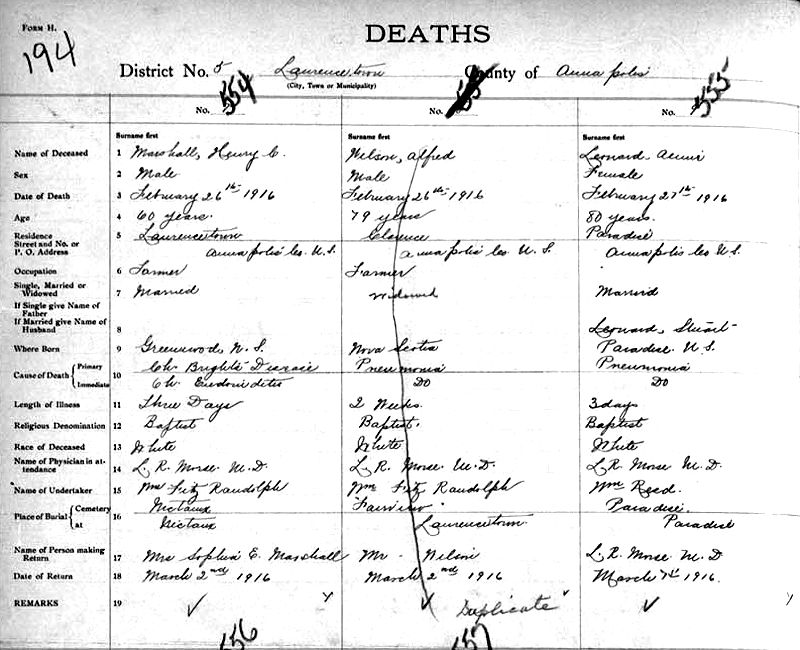 FORM H.
194
DEATHS
District No. 5 Laurencetown County of Annapolis
(City, Town or Municipality)
No. 554 No. No. 555
Surname first Surname first Surname first
Name of Deceased 1 Marshall, Henry C. Wilson, Alfred Leonard, Annie
Sex 2 Male Male Female
Date of Death 3 February 26th 1916 February 26th 1916 February 27th 1916
Age 4 60 years. 79 years 80 years.
Residence 5 Laurencetown Clarence Paradise
Street and No. or P. O. Address Annapolis Co. N. S. Annapolis Co. N. S. Annapolis Co. N. S.
Occupation 6 Farmer Farmer
Single, Married or Widowed 7 Married Widowed Married
If Single give Name of Father
If Married give Name of Husband 8 Leonard, Stuart
Where Born 9 Greenwood, N. S. Nova Scotia Paradise N. S.
Cause of Death Primary 10 Ch. Bright's Disease Pneumonia Pneumonia
Immediate Ch. Endocarditis DO DO
Length of Illness 11 Three Days 2 Weeks. 3 days
Religious Denomination 12 Baptist Baptist. Baptist
Race of Deceased 13 White White White
Name of Physician in attendance 14 L. R. Morse M. D. L. R. Morse M. D. L. R. Morse M. D.
Name of Undertaker 15 Wm Fitz Randolph Wm Fitz Randolph Wm Reed.
Place of Burial Cemetery 16 Nictaux Fairview Paradise.
at Nictaux Laurencetown Paradise
Name of Person making Return 17 Mrs Sophia E. Marshall Mr. Wilson L. R. Morse M. D
Date of Return 18 March 2nd 1916 March 2nd 1916 March 7th 1916.
REMARKS 19 ✓ ✓ Duplicate ✓
556 557